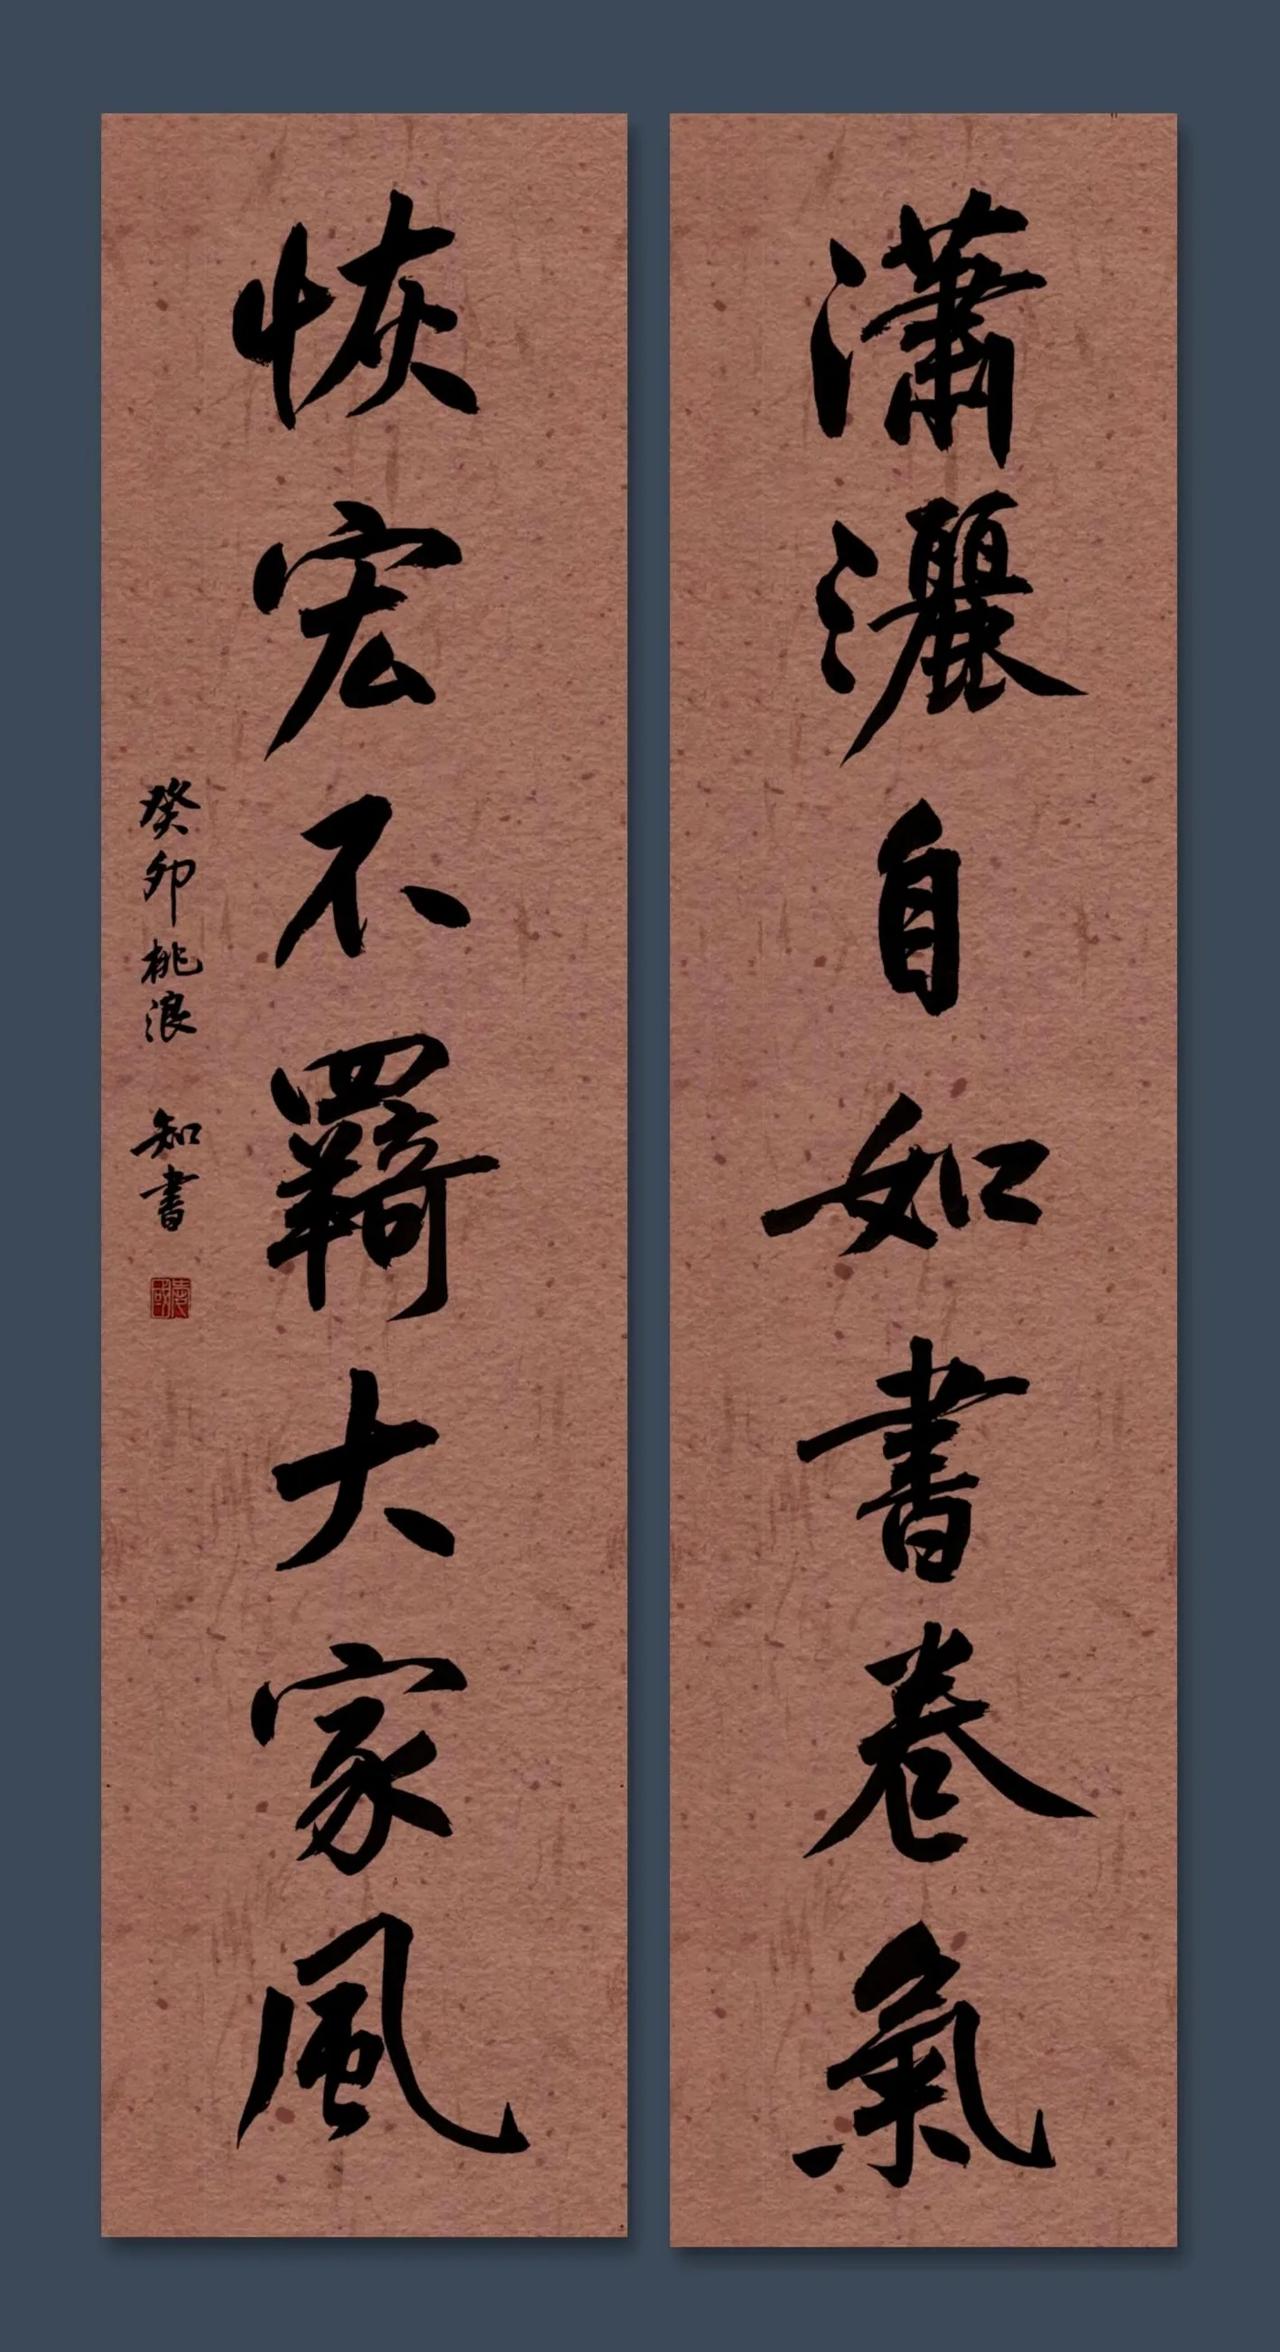 瀟灑自如書卷氣
恢宏不羈大家風
癸卯桃浪 知書